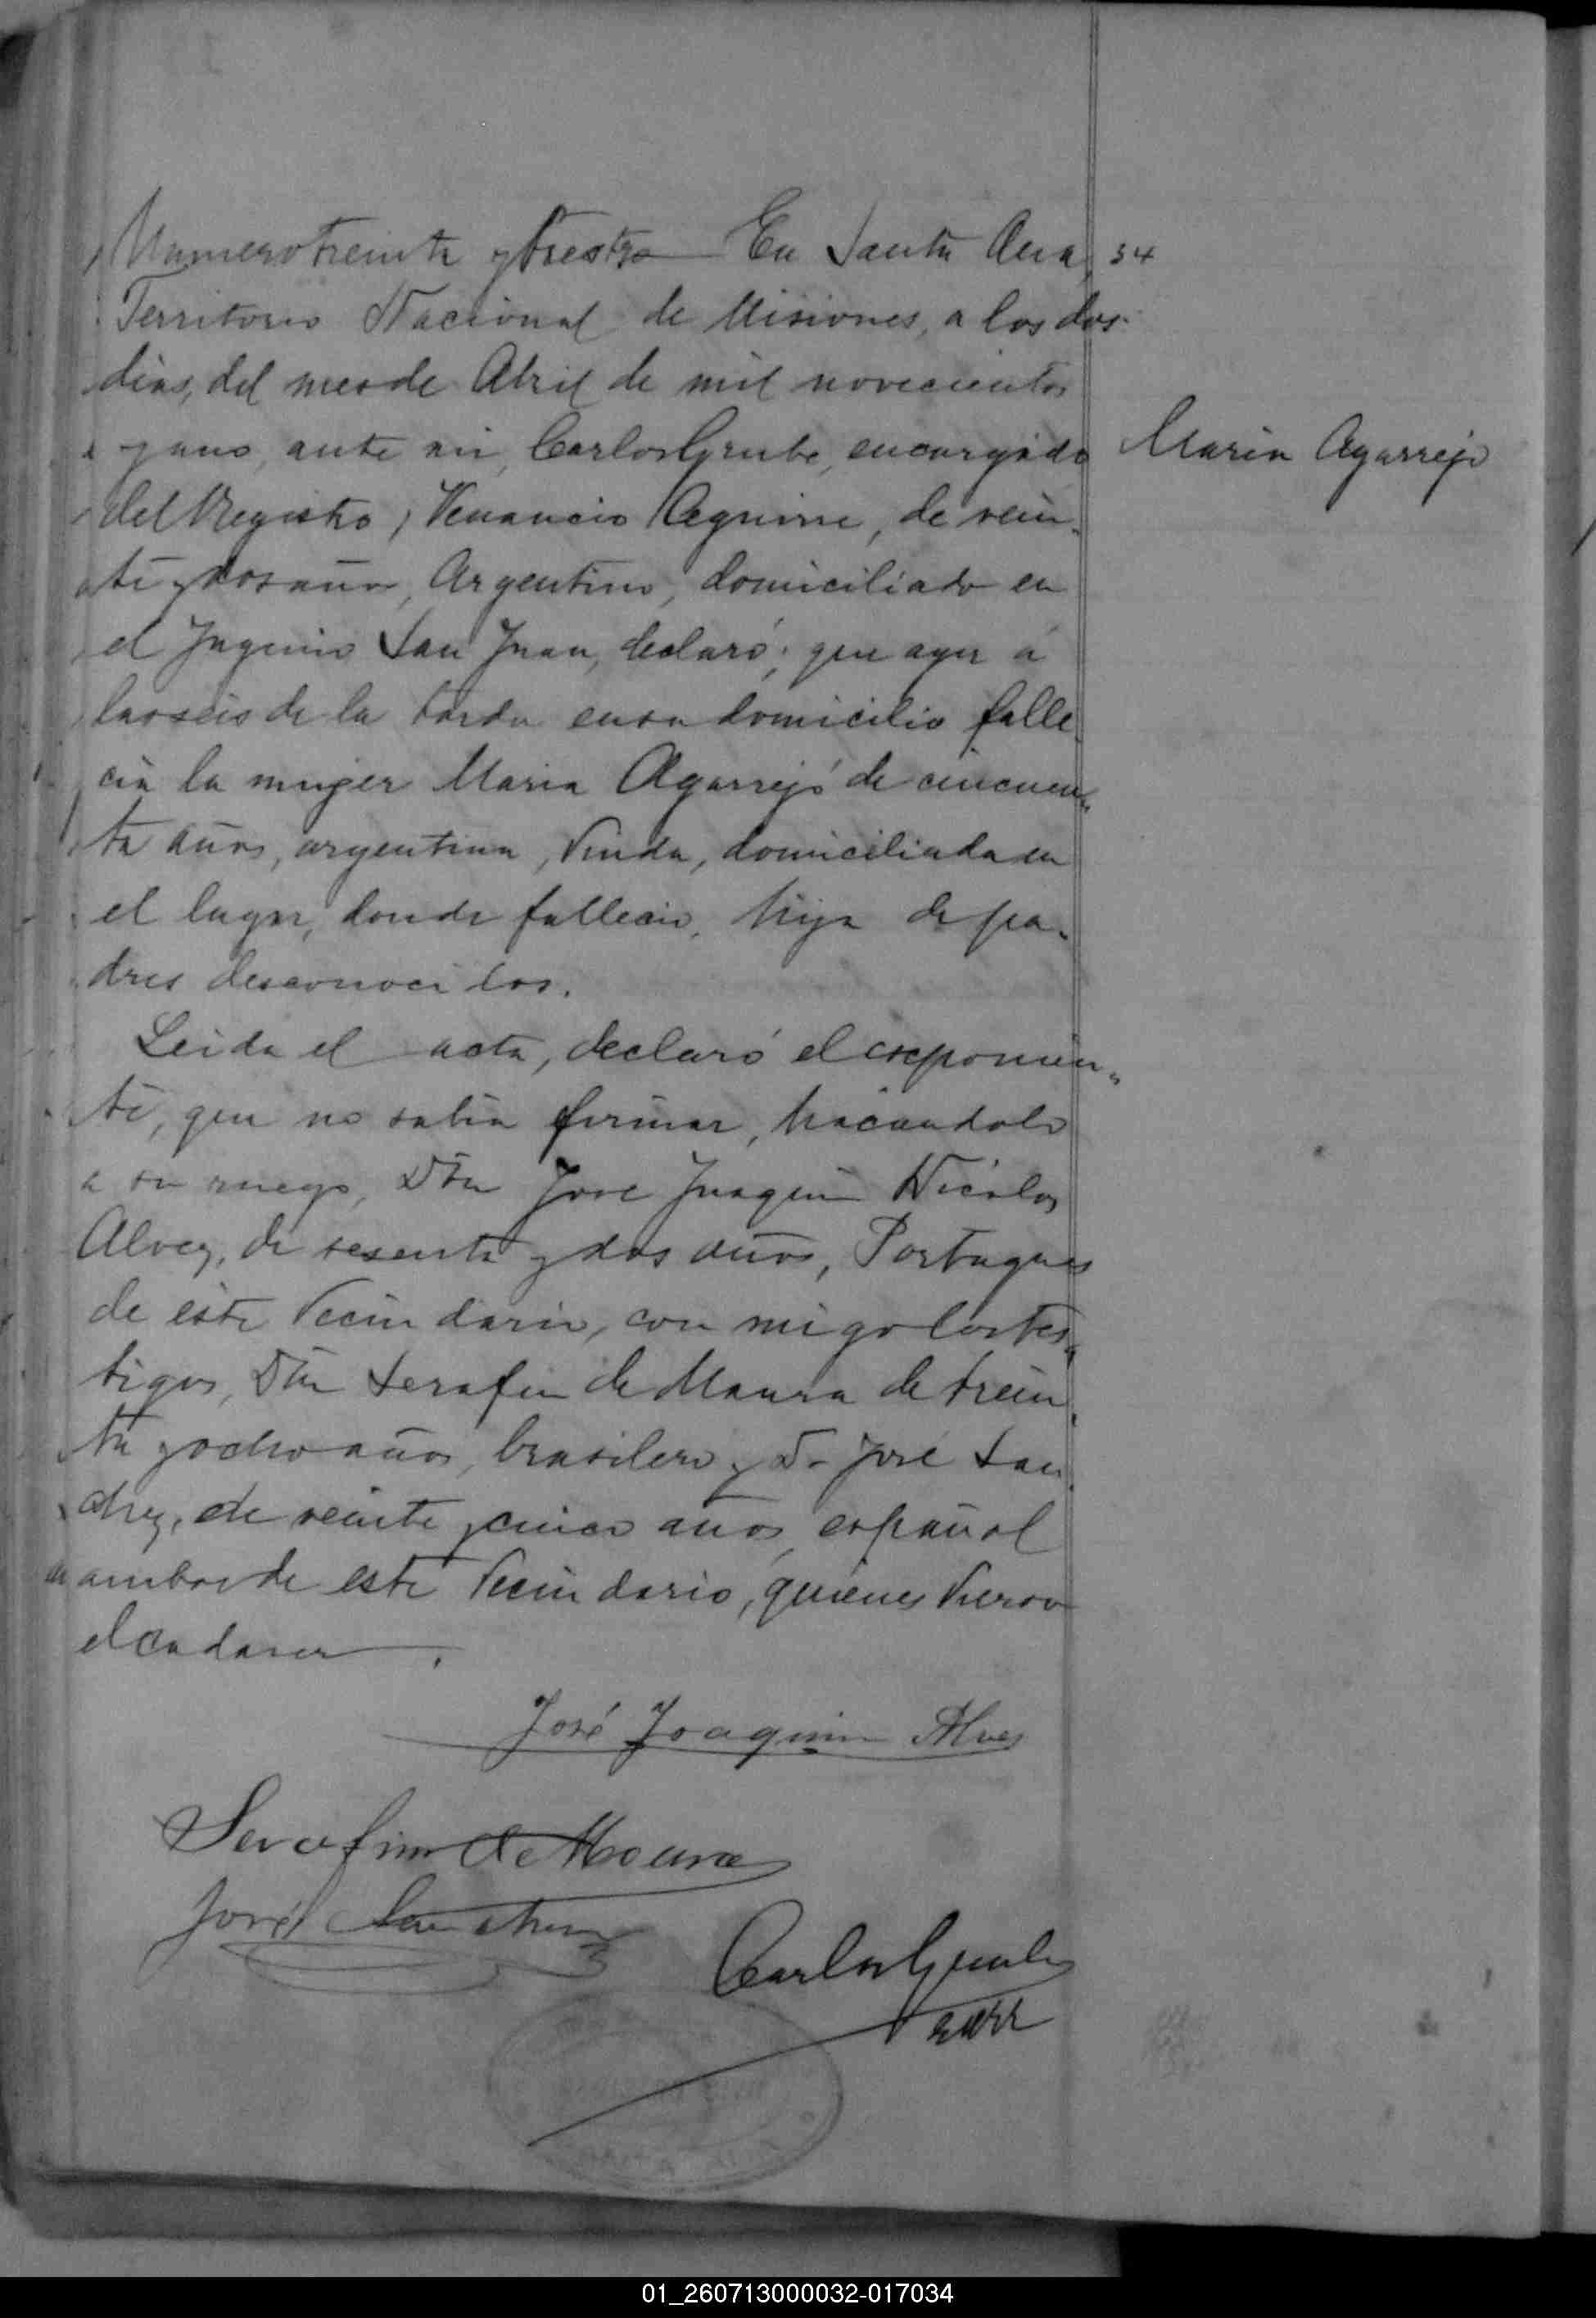 Numero treinta y trestro En Santa Ana, 34
Territorio Nacional de Misiones, a los dos
dias, del mes de Abril de mil novecientos
y uno, ante mi, Carlos Grube, encargado
Maria Agarrejo
del Registro, Venancio Aguirre, de vein-
ti y dos años, Argentino, domiciliado en
el Ingenio San Juan, declaró; que ayer á
las seis de la tarde en su domicilio falle-
cia la mujer Maria Agarrejó de cincuen-
ta años, argentina, viuda, domiciliada en
el lugar, donde fallecio, hija de pa-
dres desconocidos.
Leida el acta, declaró el exponien-
te, que no sabia firmar, haciandolo
a su ruego, Don Jose Joaquin Nicolas
Alvez, de sesenta y dos años, Portugues
de este Vecindario, con migo los tes-
tigos, Don Serafin de Maura de trein-
ta y ocho años, brasilero y D. José San-
chez, de veinte y cinco años, español
ambos de este Vecindario, quienes vieron
el cadaver.
José Joaquim Alves
Serafim de Moura
José Sanchez
Carlos Grube
01_260713000032-017034